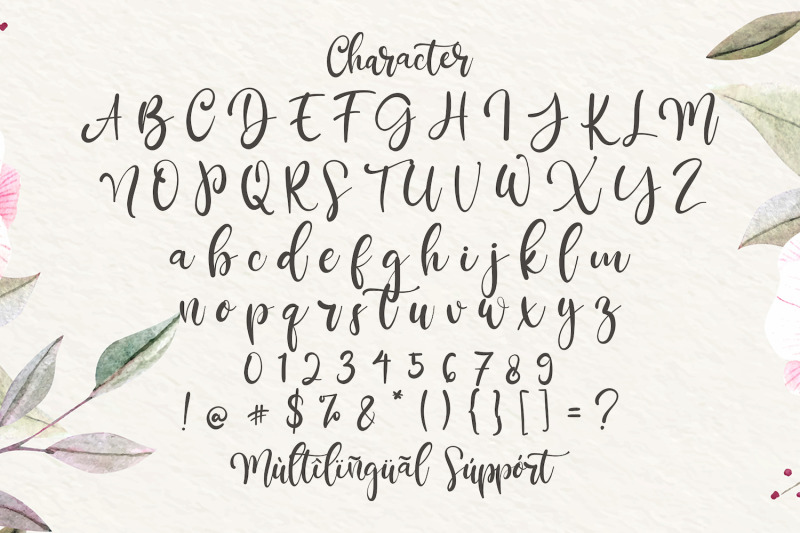 Character
A B C D E F G H I J K L M
N O P Q R S T U V W X Y Z
a b c d e f g h i j k l m
n o p q r s t u v w x y z
0 1 2 3 4 5 6 7 8 9
! @ # $ % & * ( ) { } [ ] = ?
Mùltîlïñgüãl Súppórt